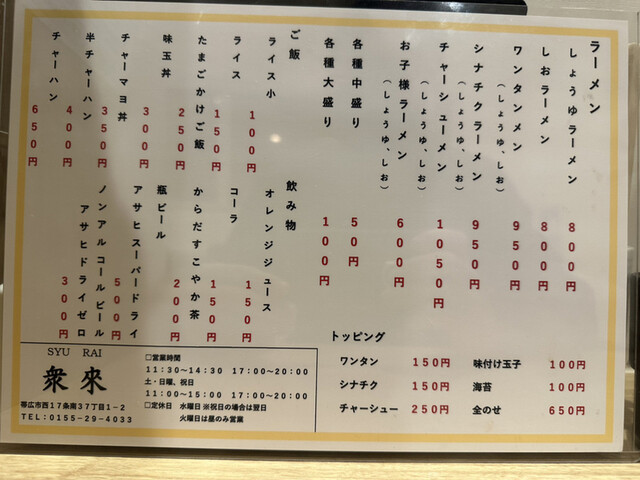 ラーメン
しょうゆラーメン 800円
しおラーメン 800円
ワンタンメン 950円
(しょうゆ、しお)
シナチクラーメン 950円
(しょうゆ、しお)
チャーシューメン 1050円
(しょうゆ、しお)
お子様ラーメン 600円
(しょうゆ、しお)
各種中盛り 50円
各種大盛り 100円
ご飯
ライス小 100円
ライス 150円
たまごかけご飯 250円
味玉丼 300円
チャーマヨ丼 350円
半チャーハン 400円
チャーハン 650円
飲み物
オレンジジュース 150円
コーラ 150円
からだすこやか茶 200円
瓶ビール
アサヒスーパードライ 500円
ノンアルコールビール
アサヒドライゼロ 300円
トッピング
ワンタン 150円 味付け玉子 100円
シナチク 150円 海苔 100円
チャーシュー 250円 全のせ 650円
SYU RAI
衆來
帯広市西17条南37丁目1-2
TEL:0155-29-4033
□営業時間
11:30~14:30 17:00~20:00
土・日曜、祝日
11:00~15:00 17:00~20:00
□定休日 水曜日※祝日の場合は翌日
火曜日は昼のみ営業